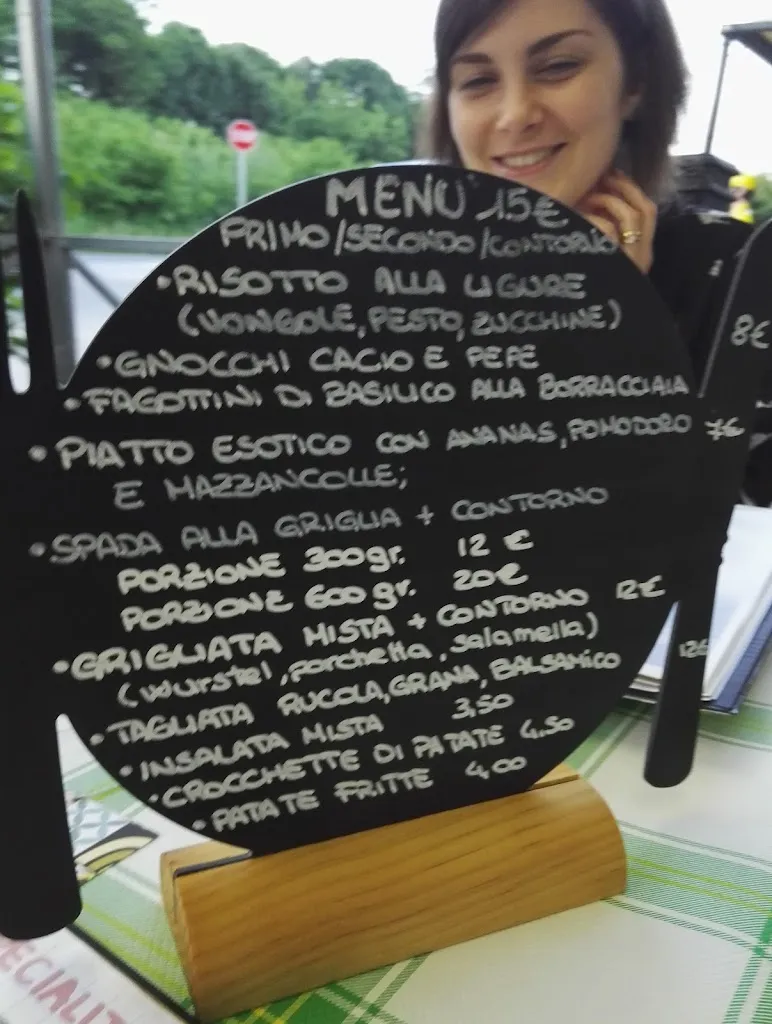 MENU' 15€
PRIMO/SECONDO/CONTORNO
• RISOTTO ALLA LIGURE
(VONGOLE, PESTO, ZUCCHINE)
8€
• GNOCCHI CACIO E PEPE
• FAGOTTINI DI BASILICO ALLA BORRACCIAIA
• PIATTO ESOTICO CON ANANAS, POMODORO 7€
E MAZZANCOLLE;
• SPADA ALLA GRIGLIA + CONTORNO
PORZIONE 300gr. 12 €
PORZIONE 600gr. 20€
• GRIGLIATA MISTA + CONTORNO 12€
(wurstel, porchetta, salamella)
• TAGLIATA RUCOLA, GRANA, BALSAMICO 12€
• INSALATA MISTA 3,50
• CROCCHETTE DI PATATE 4,50
• PATATE FRITTE 4,00
ECIALIT